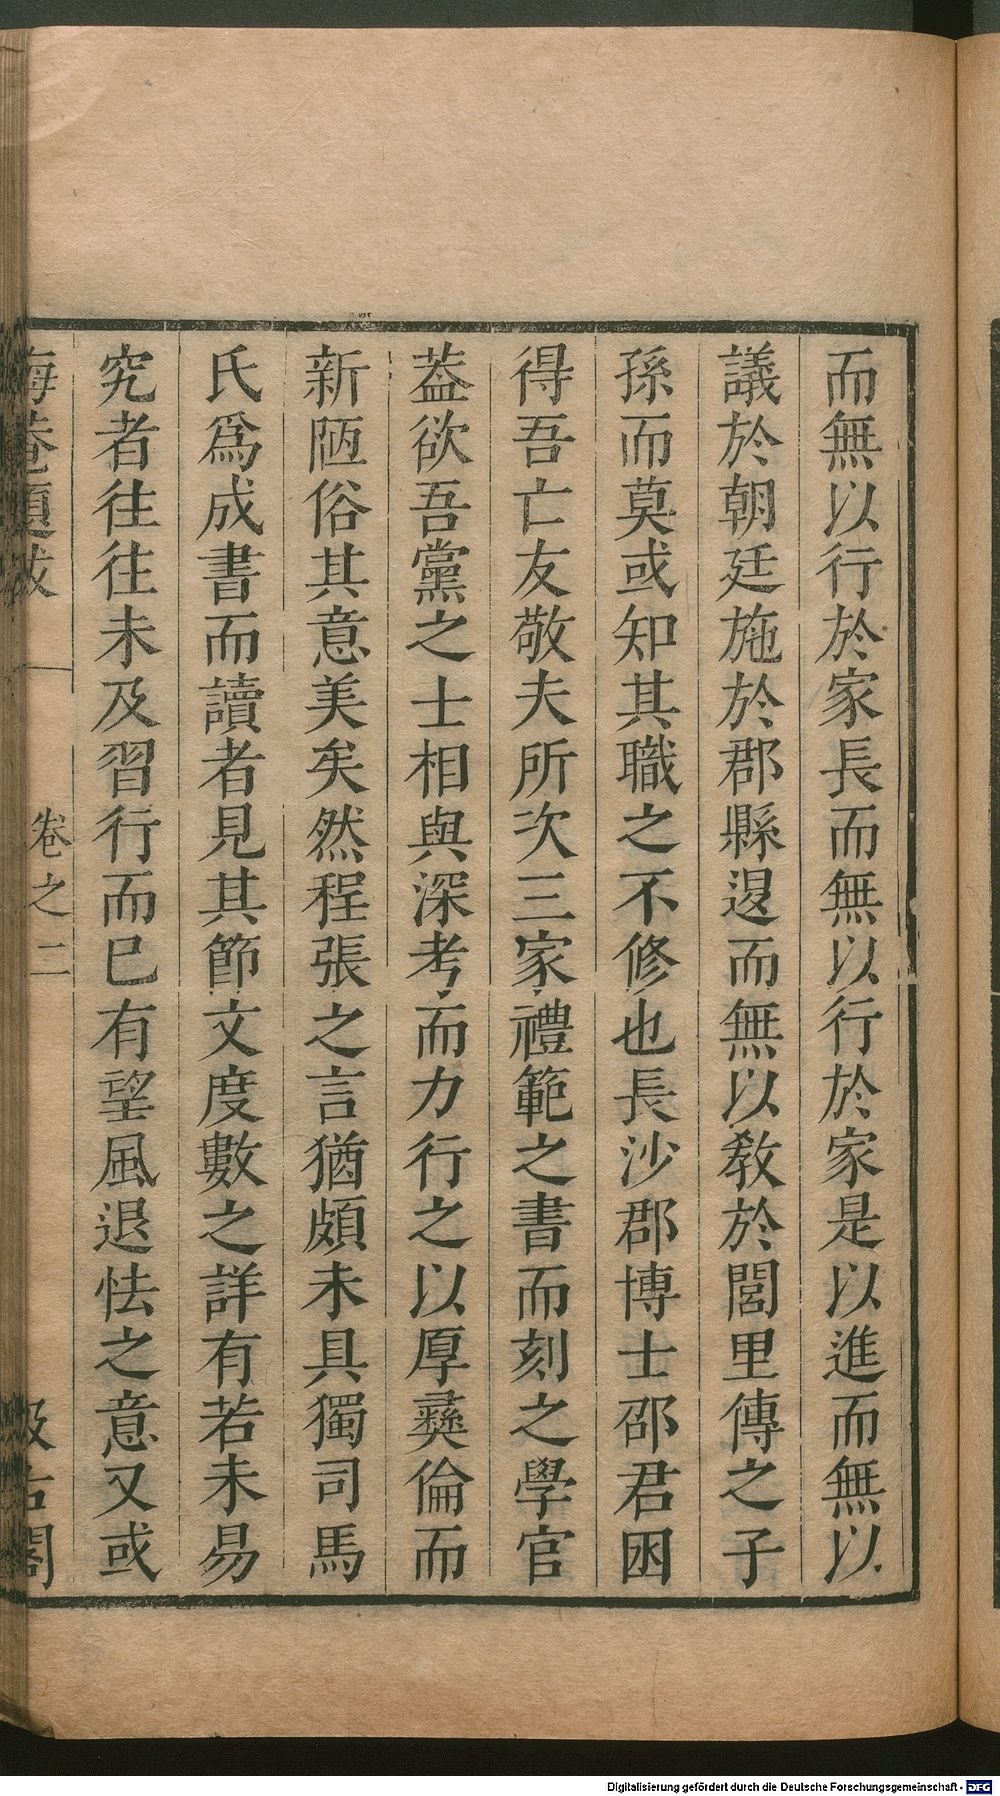 而無以行於家長而無以行於家是以進而無以
議於朝廷施於郡縣退而無以敎於閭里傳之子
孫而莫或知其職之不修也長沙郡博士邵君困
得吾亡友敬夫所次三家禮範之書而刻之學官
葢欲吾黨之士相與深考而力行之以厚彝倫而
新陋俗其意美矣然程張之言猶頗未具獨司馬
氏爲成書而讀者見其節文度數之詳有若未易
究者往往未及習行而巳有望風退怯之意又或
晦菴題跋 卷之二 汲古閣
Digitalisierung gefördert durch die Deutsche Forschungsgemeinschaft - DFG